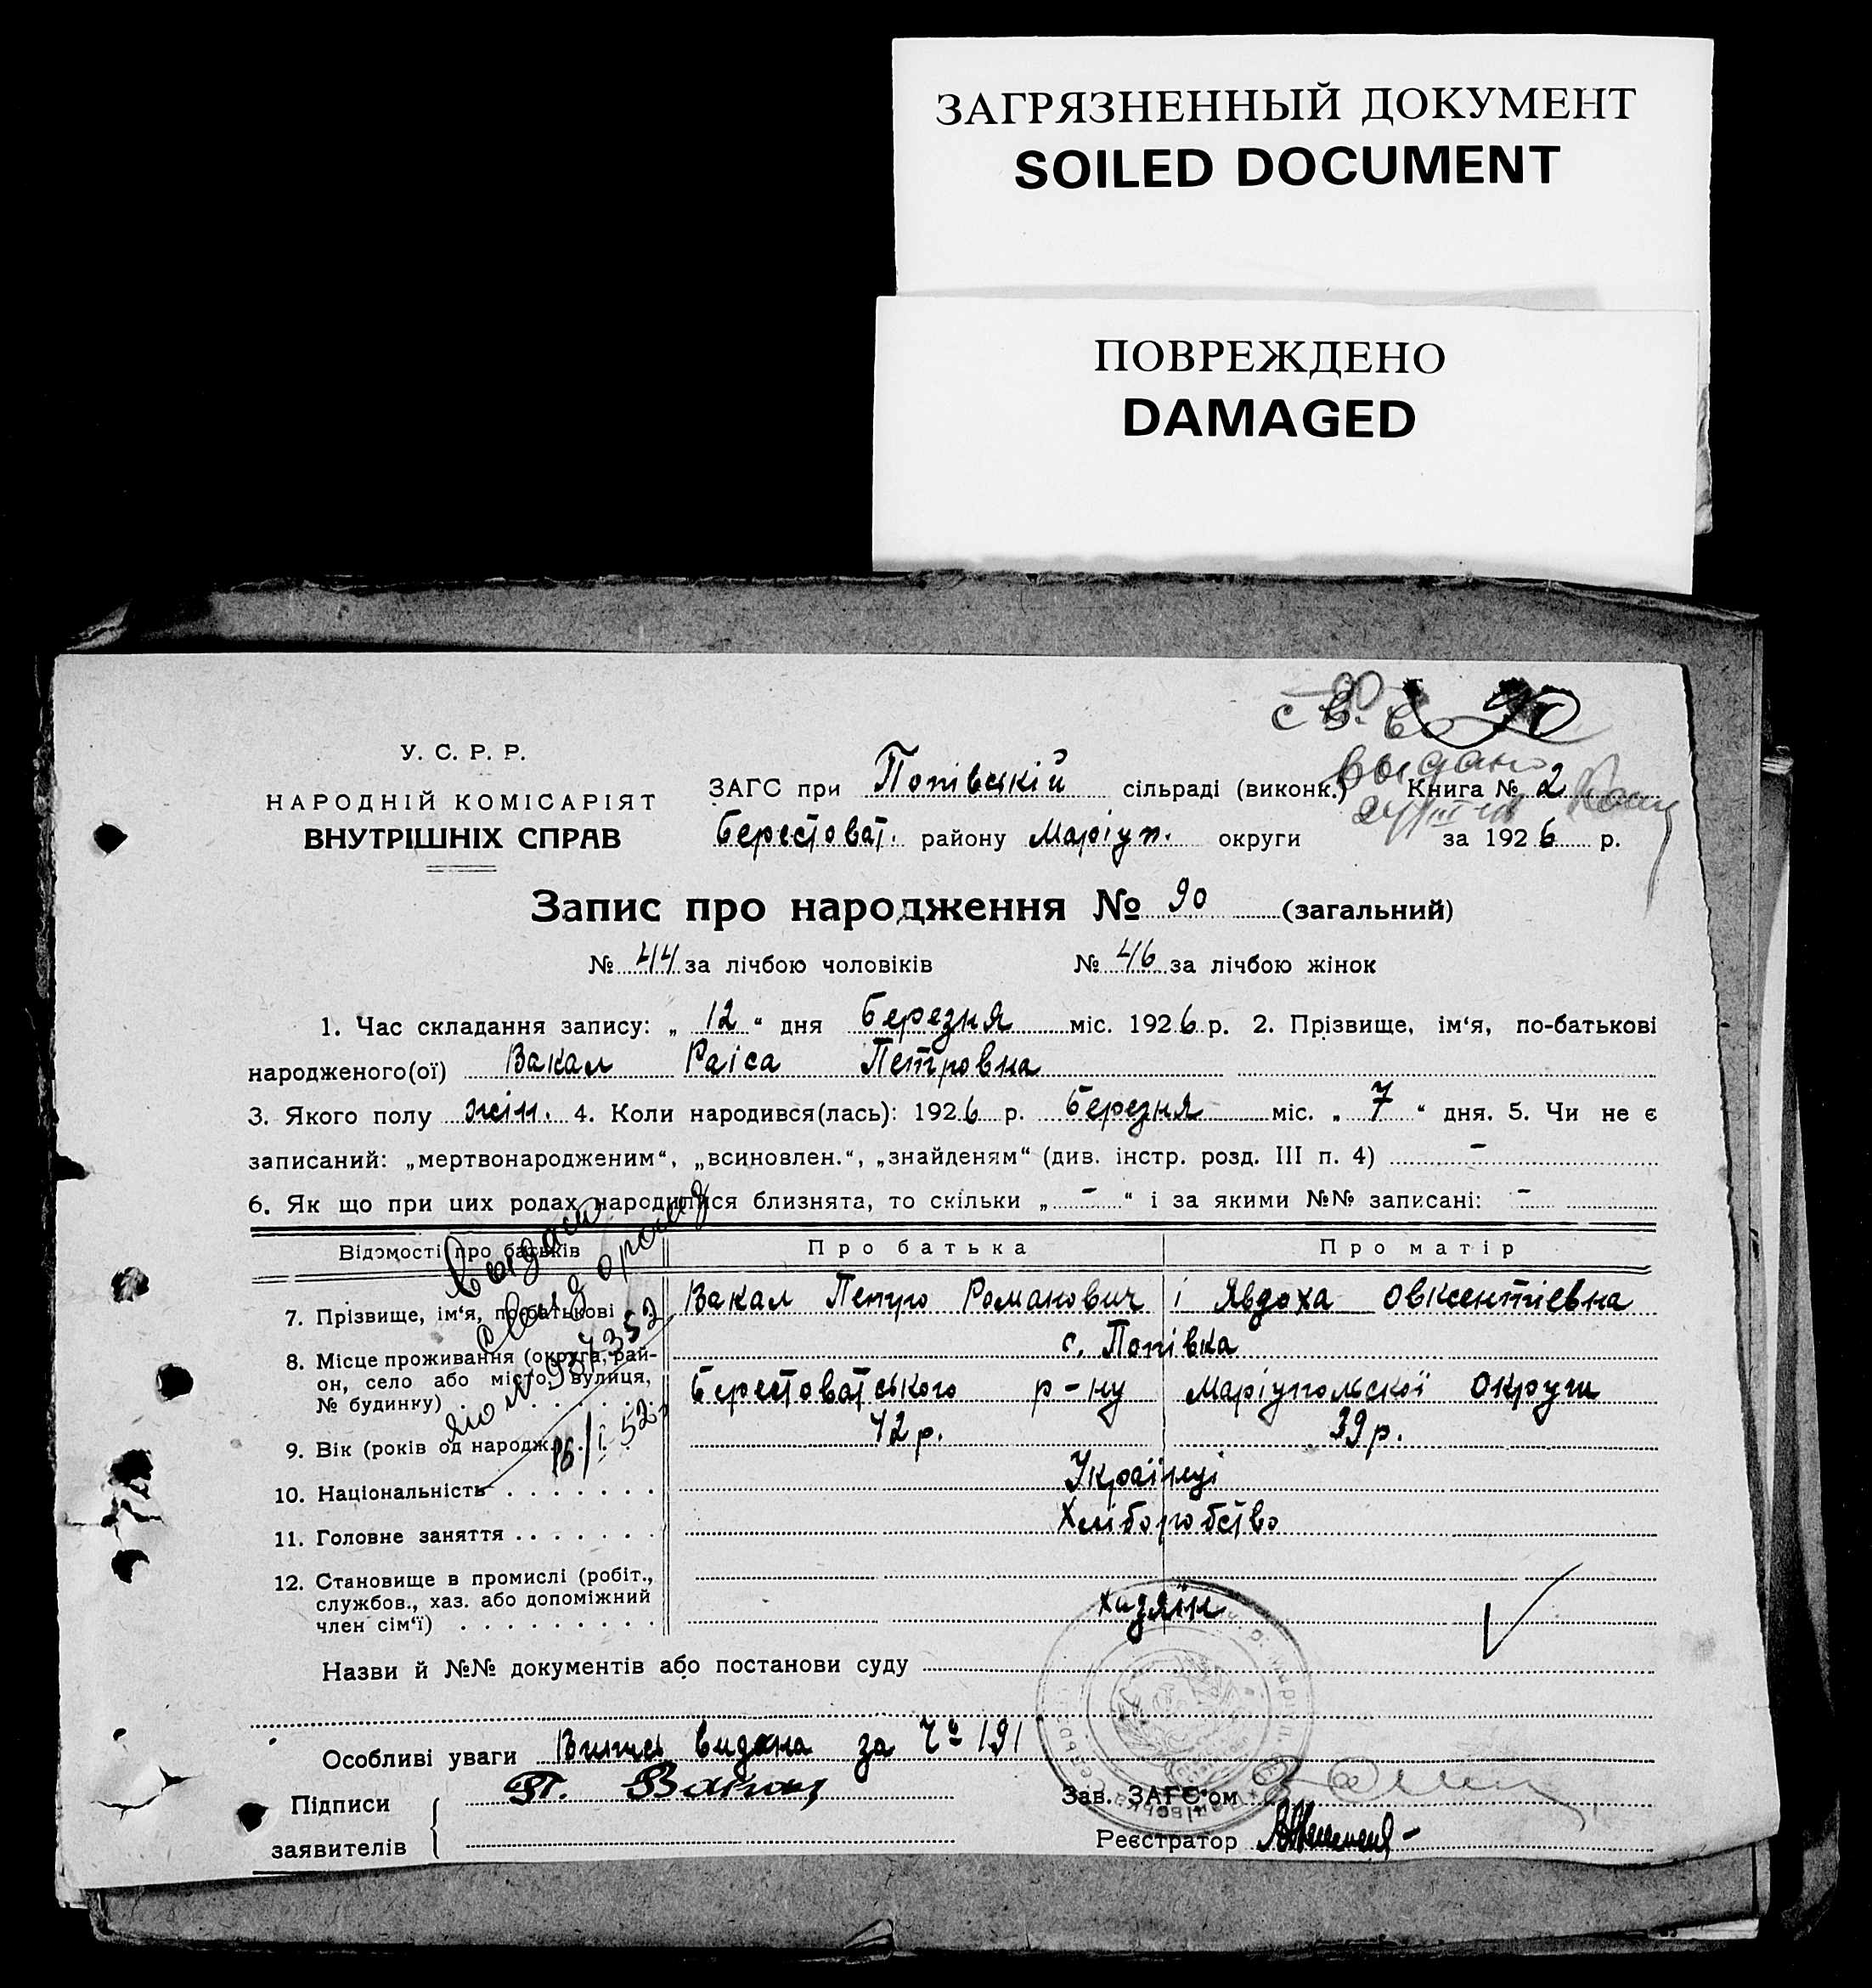 ЗАГРЯЗНЕННЫЙ ДОКУМЕНТ
SOILED DOCUMENT
ПОВРЕЖДЕНО
DAMAGED
90
У. С. Р. Р.
НАРОДНІЙ КОМІСАРІЯТ
ВНУТРІШНІХ СПРАВ
ЗАГС при Попівській сільраді (виконк.) Книга № 2
Берестоват. району Маріуп. округи за 1926 р.
Запис про народження № 90 (загальний)
№ 44 за лічбою чоловіків № 46 за лічбою жінок
1. Час складання запису: „ 12 “ дня березня міс. 1926 р. 2. Прізвище, ім‘я, по-батькові
народженого(ої) Вакал Раіса Петровна
3. Якого полу жін. 4. Коли народився(лась): 1926 р. березня міс. „ 7 “ дня. 5. Чи не є
записаний: „мертвонародженим“, „всиновлен.“, „знайденям“ (див. інстр. розд. III п. 4) –
6. Як що при цих родах народилися близнята, то скільки „ – “ і за якими №№ записані: –
Відомості про батьків Про батька Про матір
7. Прізвище, ім‘я, по-батькові Вакал Петро Романович і Явдоха Овксентіевна
8. Місце проживання (округа, район, село або місто, вулиця, № будинку) с. Попівка
Берестоватського р-ну Маріупольскої округи
9. Вік (років од народж. 42 р. 39 р.
10. Національність Українці
11. Головне заняття Хліборобство
12. Становище в промислі (робіт.,
службов., хаз. або допоміжний
член сім‘ї) хазяїн
Назви й №№ документів або постанови суду
Особливі уваги Випись видана за Ч° 191
Підписи
заявителів
П. Вакал
Зав. ЗАГС‘ом
Реєстратор